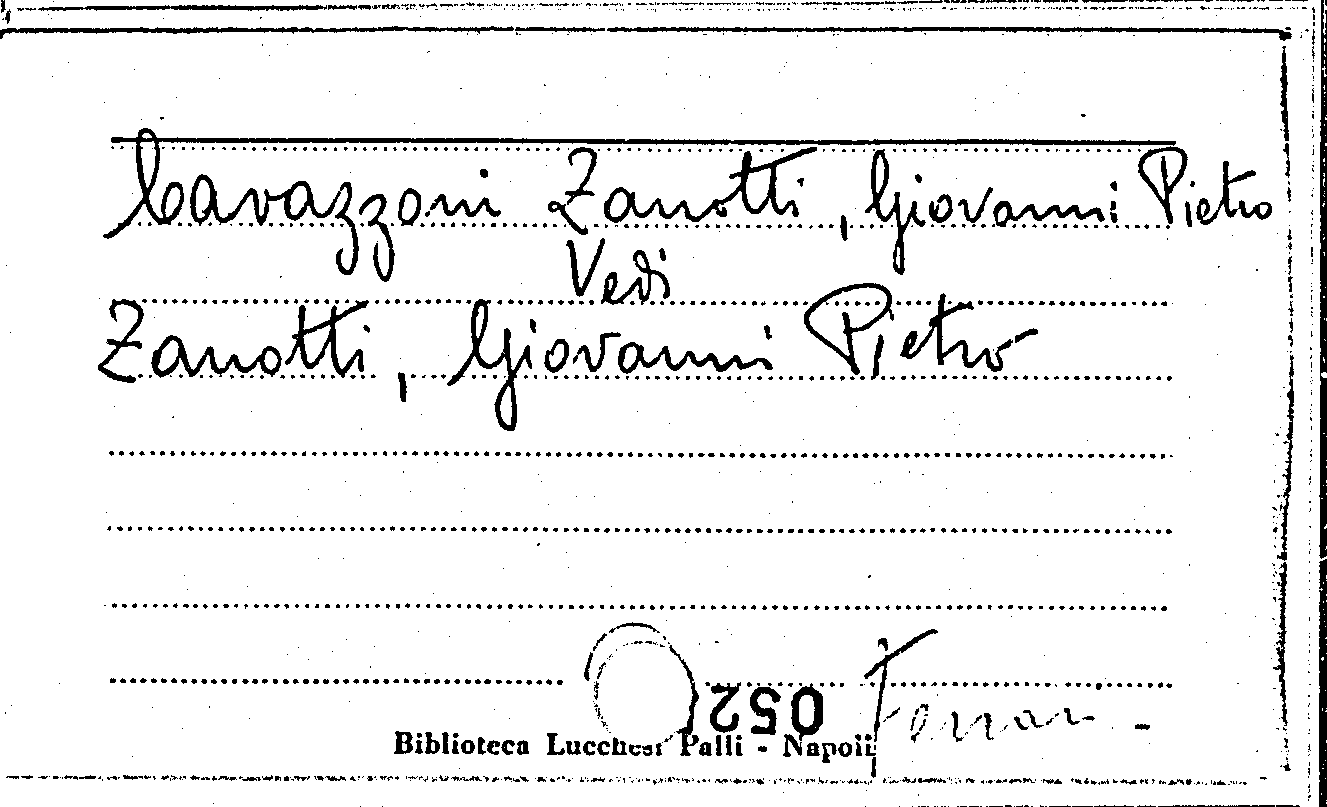 Cavazzoni Zanotti, Giovanni Pietro
Vedi
Zanotti, Giovanni Pietro
052
Ferrari
Biblioteca Lucchesi Palli - Napoli